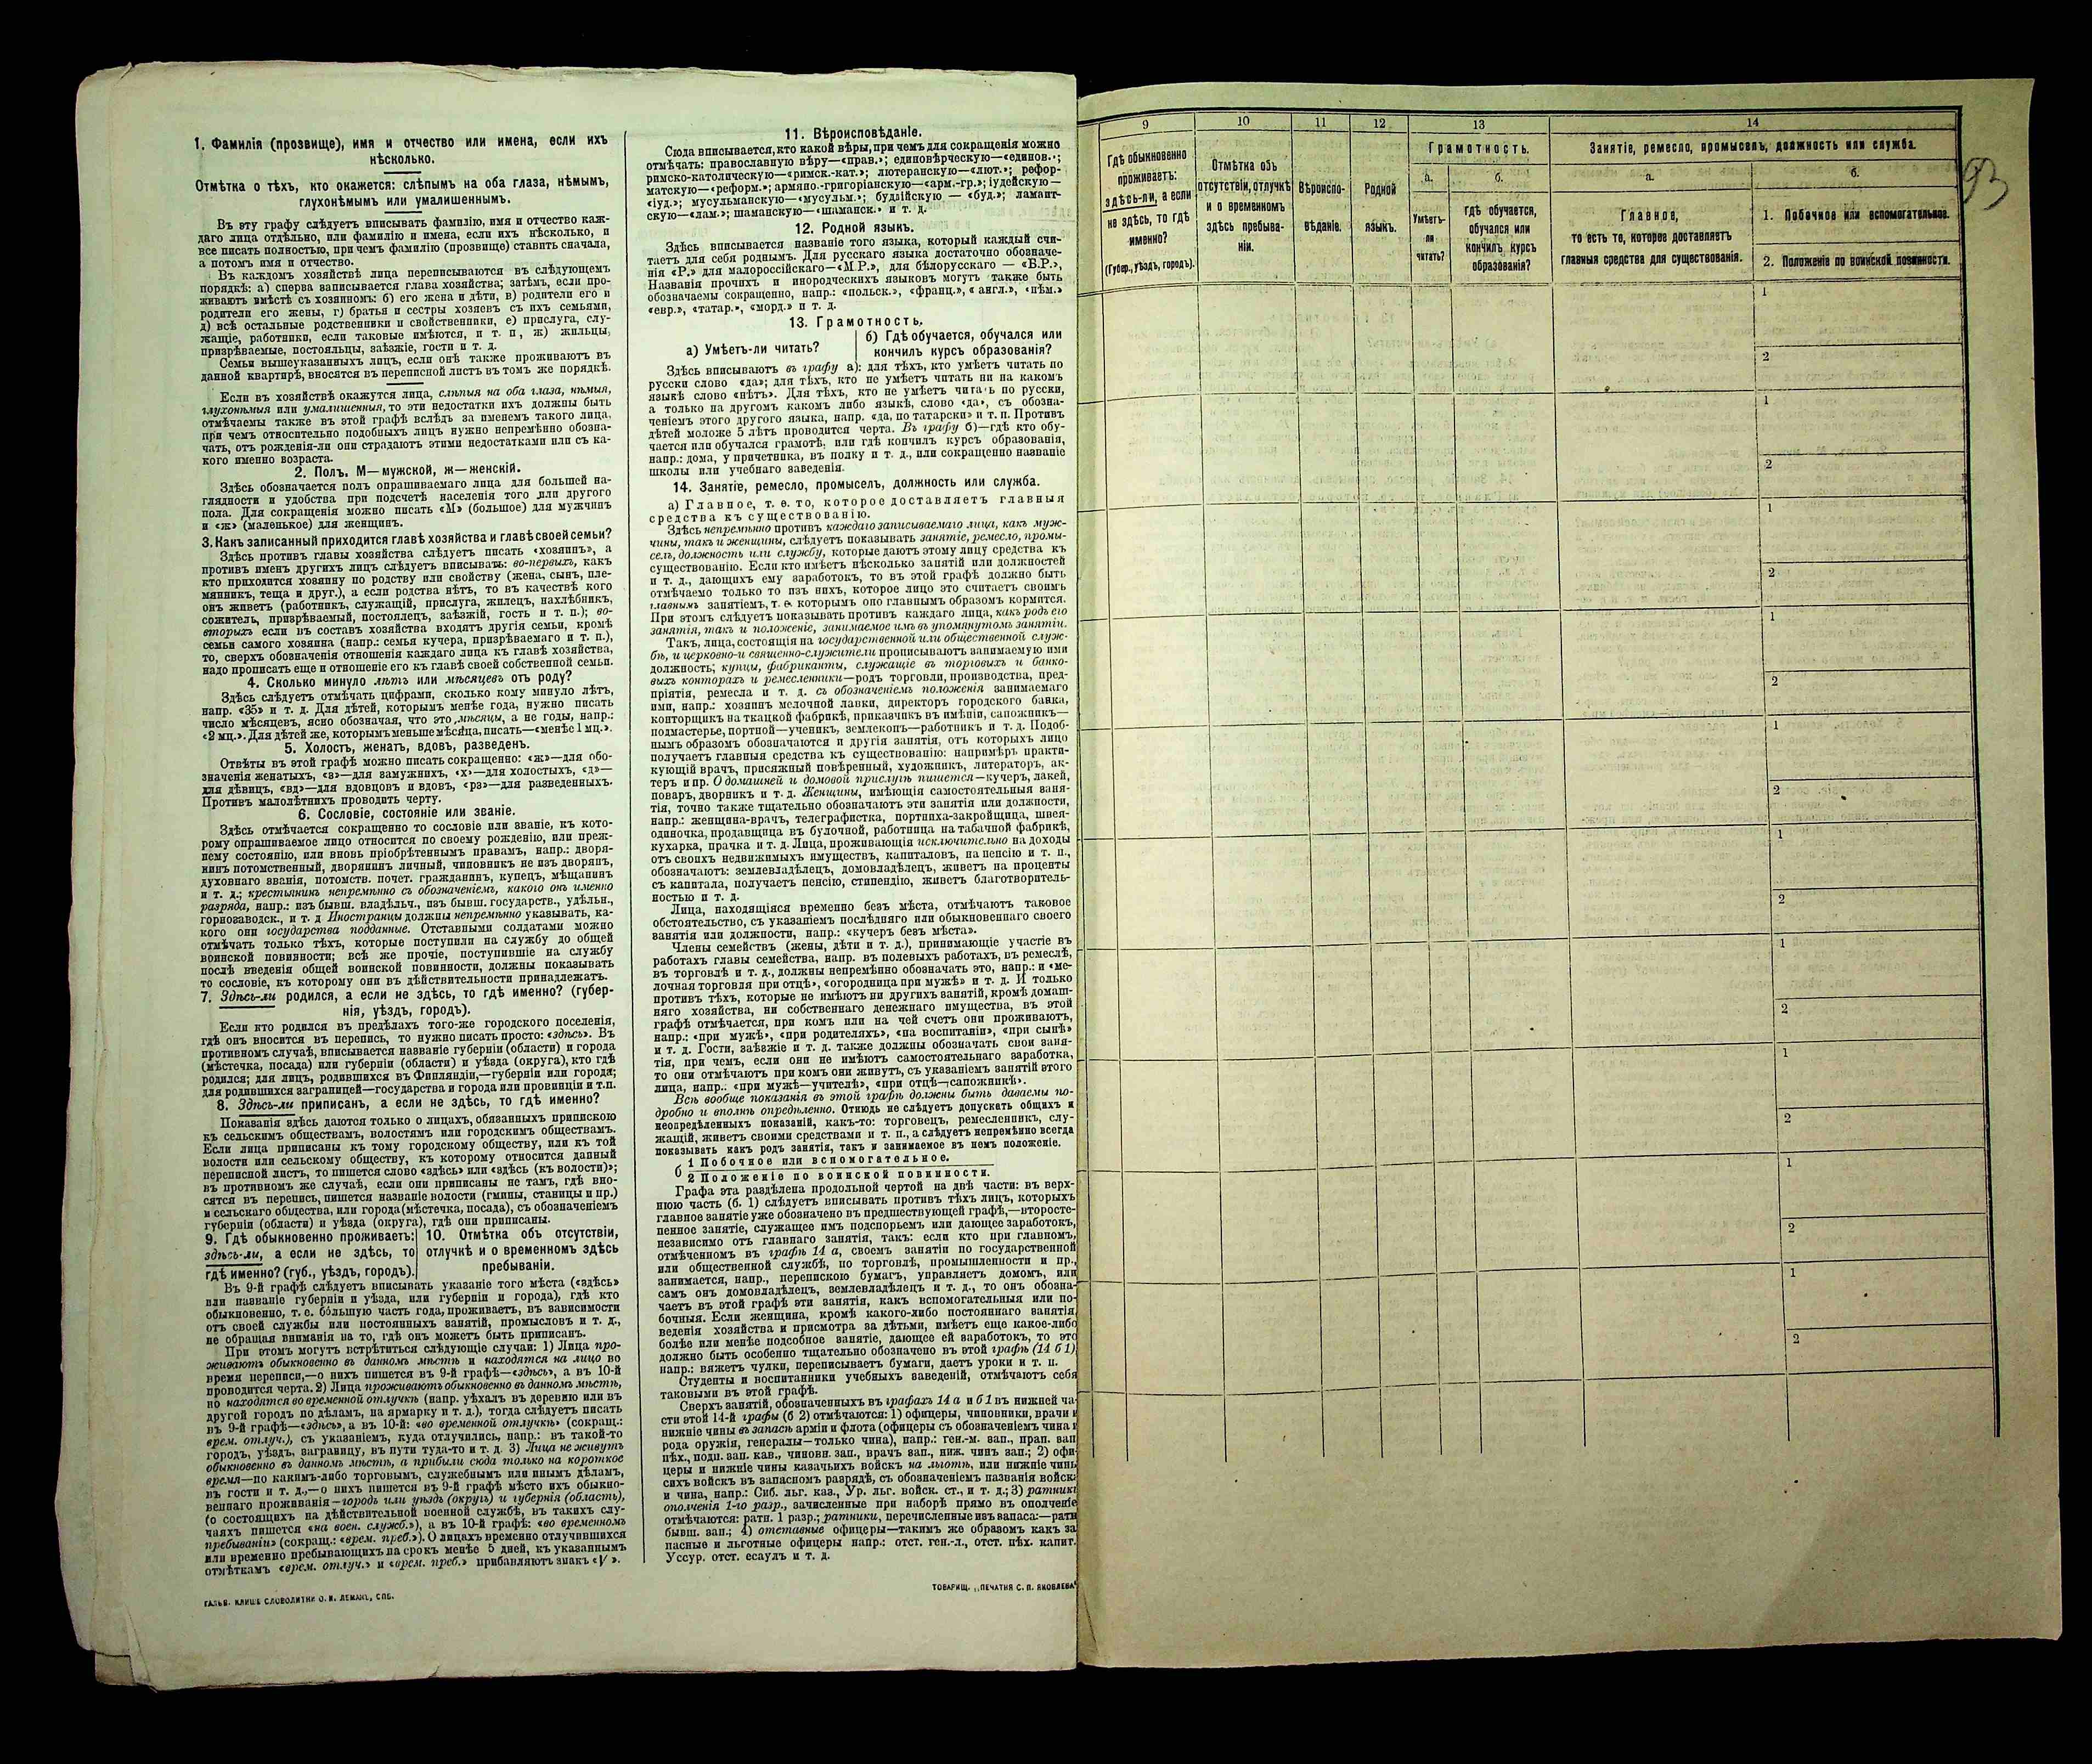 1. Фамилія (прозвище), имя и отчество или имена, если ихъ
нѣсколько.
Отмѣтка о тѣхъ, кто окажется: слѣпымъ на оба глаза, нѣмымъ,
глухонѣмымъ или умалишеннымъ.
Въ эту графу слѣдуетъ вписывать фамилію, имя и отчество каж-
даго лица отдѣльно, или фамилію и имена, если ихъ нѣсколько, и
все писать полностью, при чемъ фамилію (прозвище) ставить сначала,
а потомъ имя и отчество.
Въ каждомъ хозяйствѣ лица переписываются въ слѣдующемъ
порядкѣ: а) сперва записывается глава хозяйства; затѣмъ, если про-
живаютъ вмѣстѣ съ хозяиномъ: б) его жена и дѣти, в) родители его и
родители его жены, г) братья и сестры хозяевъ съ ихъ семьями,
д) всѣ остальные родственники и свойственники, е) прислуга, слу-
жащіе, работники, если таковые имѣются, и т. п., ж) жильцы,
призрѣваемые, постояльцы, заѣзжіе, гости и т. д.
Семьи вышеуказанныхъ лицъ, если онѣ также проживаютъ въ
данной квартирѣ, вносятся въ переписной листъ въ томъ же порядкѣ.
Если въ хозяйствѣ окажутся лица, слѣпыя на оба глаза, нѣмыя,
глухонѣмыя или умалишенныя, то эти недостатки ихъ должны быть
отмѣчаемы также въ этой графѣ вслѣдъ за именемъ такого лица,
при чемъ относительно подобныхъ лицъ нужно непремѣнно обозна-
чать, отъ рожденія-ли они страдаютъ этими недостатками или съ ка-
кого именно возраста.
2. Полъ. М—мужской, ж—женскій.
Здѣсь обозначается полъ опрашиваемаго лица для большей на-
глядности и удобства при подсчетѣ населенія того или другого
пола. Для сокращенія можно писать «М» (большое) для мужчинъ
и «ж» (маленькое) для женщинъ.
3. Какъ записанный приходится главѣ хозяйства и главѣ своей семьи?
Здѣсь противъ главы хозяйства слѣдуетъ писать «хозяинъ», а
противъ именъ другихъ лицъ слѣдуетъ вписывать: во-первыхъ, какъ
кто приходится хозяину по родству или свойству (жена, сынъ, пле-
мянникъ, теща и друг.), а если родства нѣтъ, то въ качествѣ кого
онъ живетъ (работникъ, служащій, прислуга, жилецъ, нахлѣбникъ,
сожитель, призрѣваемый, постоялецъ, заѣзжій, гость и т. п.); во-
вторыхъ если въ составъ хозяйства входятъ другія семьи, кромѣ
семьи самого хозяина (напр.: семья кучера, призрѣваемаго и т. п.),
то, сверхъ обозначенія отношенія каждаго лица къ главѣ хозяйства,
надо прописать еще и отношеніе его къ главѣ своей собственной семьи.
4. Сколько минуло лѣтъ или мѣсяцевъ отъ роду?
Здѣсь слѣдуетъ отмѣчать цифрами, сколько кому минуло лѣтъ,
напр. «35» и т. д. Для дѣтей, которымъ менѣе года, нужно писать
число мѣсяцевъ, ясно обозначая, что это мѣсяцы, а не годы, напр.:
«2 мц.». Для дѣтей же, которымъ меньше мѣсяца, писать—«менѣе 1 мц.».
5. Холостъ, женатъ, вдовъ, разведенъ.
Отвѣты въ этой графѣ можно писать сокращенно: «ж»—для обо-
значенія женатыхъ, «з»—для замужнихъ, «х»—для холостыхъ, «д»—
для дѣвицъ, «вд»—для вдовцовъ и вдовъ, «рз»—для разведенныхъ.
Противъ малолѣтнихъ проводить черту.
6. Сословіе, состояніе или званіе.
Здѣсь отмѣчается сокращенно то сословіе или званіе, къ кото-
рому опрашиваемое лицо относится по своему рожденію, или преж-
нему состоянію, или вновь пріобрѣтеннымъ правамъ, напр.: дворя-
нинъ потомственный, дворянинъ личный, чиновникъ не изъ дворянъ,
духовнаго званія, потомств. почет. гражданинъ, купецъ, мѣщанинъ
и т. д.; крестьянинъ непремѣнно съ обозначеніемъ, какого онъ именно
разряда, напр.: изъ бывш. владѣльч., изъ бывш. государств., удѣльн.,
горнозаводск., и т. д. Иностранцы должны непремѣнно указывать, ка-
кого они государства подданные. Отставными солдатами можно
отмѣчать только тѣхъ, которые поступили на службу до общей
воинской повинности; всѣ же прочіе, поступившіе на службу
послѣ введенія общей воинской повинности, должны показывать
то сословіе, къ которому они въ дѣйствительности принадлежатъ.
7. Здѣсь-ли родился, а если не здѣсь, то гдѣ именно? (губер-
нія, уѣздъ, городъ).
Если кто родился въ предѣлахъ того-же городского поселенія,
гдѣ онъ вносится въ перепись, то нужно писать просто: «здѣсь». Въ
противномъ случаѣ, вписывается названіе губерніи (области) и города
(мѣстечка, посада) или губерніи (области) и уѣзда (округа), кто гдѣ
родился; для лицъ, родившихся въ Финляндіи,—губерніи или города;
для родившихся заграницей—государства и города или провинціи и т.п.
8. Здѣсь-ли приписанъ, а если не здѣсь, то гдѣ именно?
Показанія здѣсь даются только о лицахъ, обязанныхъ припискою
къ сельскимъ обществамъ, волостямъ или городскимъ обществамъ.
Если лица приписаны къ тому городскому обществу, или къ той
волости или сельскому обществу, къ которому относится данный
переписной листъ, то пишется слово «здѣсь» или «здѣсь (къ волости)»;
въ противномъ же случаѣ, если они приписаны не тамъ, гдѣ вно-
сятся въ перепись, пишется названіе волости (гмины, станицы и пр.)
и сельскаго общества, или города (мѣстечка, посада), съ обозначеніемъ
губерніи (области) и уѣзда (округа), гдѣ они приписаны.
9. Гдѣ обыкновенно проживаетъ:
здѣсь-ли, а если не здѣсь, то
гдѣ именно? (губ., уѣздъ, городъ).
10. Отмѣтка объ отсутствіи,
отлучкѣ и о временномъ здѣсь
пребываніи.
Въ 9-й графѣ слѣдуетъ вписывать указаніе того мѣста («здѣсь»
или названіе губерніи и уѣзда, или губерніи и города), гдѣ кто
обыкновенно, т. е. бо́льшую часть года, проживаетъ, въ зависимости
отъ своей службы или постоянныхъ занятій, промысловъ и т. д.,
не обращая вниманія на то, гдѣ онъ можетъ быть приписанъ.
При этомъ могутъ встрѣтиться слѣдующіе случаи: 1) Лица про-
живаютъ обыкновенно въ данномъ мѣстѣ и находятся на лицо во
время переписи,—о нихъ пишется въ 9-й графѣ—«здѣсь», а въ 10-й
проводится черта. 2) Лица проживаютъ обыкновенно въ данномъ мѣстѣ,
но находятся во временной отлучкѣ (напр. уѣхалъ въ деревню или въ
другой городъ по дѣламъ, на ярмарку и т. д.), тогда слѣдуетъ писать
въ 9-й графѣ—«здѣсь», а въ 10-й: «во временной отлучкѣ» (сокращ.:
врем. отлуч.), съ указаніемъ, куда отлучились, напр.: въ такой-то
городъ, уѣздъ, заграницу, въ пути туда-то и т. д. 3) Лица не живутъ
обыкновенно въ данномъ мѣстѣ, а прибыли сюда только на короткое
время—по какимъ-либо торговымъ, служебнымъ или инымъ дѣламъ,
въ гости и т. д.,—о нихъ пишется въ 9-й графѣ мѣсто ихъ обыкно-
веннаго проживанія—городъ или уѣздъ (округъ) и губернія (область),
(о состоящихъ на дѣйствительной военной службѣ, въ такихъ слу-
чаяхъ пишется «на воен. служб.»), а въ 10-й графѣ: «во временномъ
пребываніи» (сокращ.: «врем. преб.»). О лицахъ временно отлучившихся
или временно пребывающихъ на срокъ менѣе 5 дней, къ указаннымъ
отмѣткамъ «врем. отлуч.» и «врем. преб.» прибавляютъ знакъ «V».
ГАЛЬВ. КЛИШЕ СЛОВОЛИТНИ О. И. ЛЕМАНЪ, СПБ.
11. Вѣроисповѣданіе.
Сюда вписывается, кто какой вѣры, при чемъ для сокращенія можно
отмѣчать: православную вѣру—«прав.»; единовѣрческую—«единов.»;
римско-католическую—«римск.-кат.»; лютеранскую—«лют.»; рефор-
матскую—«реформ.»; армяно.-григоріанскую—«арм.-гр.»; іудейскую—
«іуд.»; мусульманскую—«мусульм.»; буддійскую — «буд.»; ламаит-
скую—«лам.»; шаманскую—«шаманск.» и т. д.
12. Родной языкъ.
Здѣсь вписывается названіе того языка, который каждый счи-
таетъ для себя роднымъ. Для русскаго языка достаточно обозначе-
нія «Р.» для малороссійскаго—«М.Р.», для бѣлорусскаго — «Б.Р.»,
Названія прочихъ и инородческихъ языковъ могутъ также быть
обозначаемы сокращенно, напр.: «польск.», «франц.», «англ.», «нѣм.»
«евр.», «татар.», «морд.» и т. д.
13. Грамотность.
а) Умѣетъ-ли читать?
б) Гдѣ обучается, обучался или
кончилъ курсъ образованія?
Здѣсь вписываютъ въ графу а): для тѣхъ, кто умѣетъ читать по
русски слово «да»; для тѣхъ, кто не умѣетъ читать ни на какомъ
языкѣ слово «нѣтъ». Для тѣхъ, кто не умѣетъ читать по русски,
а только на другомъ какомъ либо языкѣ, слово «да», съ обозна-
ченіемъ этого другого языка, напр. «да, по татарски» и т. п. Противъ
дѣтей моложе 5 лѣтъ проводится черта. Въ графу б)—гдѣ кто обу-
чается или обучался грамотѣ, или гдѣ кончилъ курсъ образованія,
напр.: дома, у причетника, въ полку и т. д., или сокращенно названіе
школы или учебнаго заведенія.
14. Занятіе, ремесло, промыселъ, должность или служба.
а) Главное, т. е. то, которое доставляетъ главныя
средства къ существованію.
Здѣсь непремѣнно противъ каждаго записываемаго лица, какъ муж-
чины, такъ и женщины, слѣдуетъ показывать занятіе, ремесло, промы-
селъ, должность или службу, которые даютъ этому лицу средства къ
существованію. Если кто имѣетъ нѣсколько занятій или должностей
и т. д., дающихъ ему заработокъ, то въ этой графѣ должно быть
отмѣчаемо только то изъ нихъ, которое лицо это считаетъ своимъ
главнымъ занятіемъ, т. е. которымъ оно главнымъ образомъ кормится.
При этомъ слѣдуетъ показывать противъ каждаго лица, какъ родъ его
занятія, такъ и положеніе, занимаемое имъ въ упомянутомъ занятіи.
Такъ, лица, состоящія на государственной или общественной служ-
бѣ, и церковно-и священно-служители прописываютъ занимаемую ими
должность; купцы, фабриканты, служащіе въ торговыхъ и банко-
выхъ конторахъ и ремесленники—родъ торговли, производства, пред-
пріятія, ремесла и т. д. съ обозначеніемъ положенія занимаемаго
ими, напр.: хозяинъ мелочной лавки, директоръ городского банка,
конторщикъ на ткацкой фабрикѣ, приказчикъ въ имѣніи, сапожникъ—
подмастерье, портной—ученикъ, землекопъ—работникъ и т. д. Подоб-
нымъ образомъ обозначаются и другія занятія, отъ которыхъ лицо
получаетъ главныя средства къ существованію: напримѣръ практи-
кующій врачъ, присяжный повѣренный, художникъ, литераторъ, ак-
теръ и пр. О домашней и домовой прислугѣ пишется—кучеръ, лакей,
поваръ, дворникъ и т. д. Женщины, имѣющія самостоятельныя заня-
тія, точно также тщательно обозначаютъ эти занятія или должности,
напр.: женщина-врачъ, телеграфистка, портниха-закройщица, швея-
одиночка, продавщица въ булочной, работница на табачной фабрикѣ,
кухарка, прачка и т. д. Лица, проживающія исключительно на доходы
отъ своихъ недвижимыхъ имуществъ, капиталовъ, на пенсію и т. п.,
обозначаютъ: землевладѣлецъ, домовладѣлецъ, живетъ на проценты
съ капитала, получаетъ пенсію, стипендію, живетъ благотворитель-
ностью и т. д.
Лица, находящіяся временно безъ мѣста, отмѣчаютъ таковое
обстоятельство, съ указаніемъ послѣдняго или обыкновеннаго своего
занятія или должности, напр.: «кучеръ безъ мѣста».
Члены семействъ (жены, дѣти и т. д.), принимающіе участіе въ
работахъ главы семейства, напр. въ полевыхъ работахъ, въ ремеслѣ,
въ торговлѣ и т. д., должны непремѣнно обозначать это, напр.: и «ме-
лочная торговля при отцѣ», «огородница при мужѣ» и т. д. И только
противъ тѣхъ, которые не имѣютъ ни другихъ занятій, кромѣ домаш-
няго хозяйства, ни собственнаго денежнаго имущества, въ этой
графѣ отмѣчается, при комъ или на чей счетъ они проживаютъ,
напр.: «при мужѣ», «при родителяхъ», «на воспитаніи», «при сынѣ»
и т. д. Гости, заѣзжіе и т. д. также должны обозначать свои заня-
тія, при чемъ, если они не имѣютъ самостоятельнаго заработка,
то они отмѣчаютъ при комъ они живутъ, съ указаніемъ занятій этого
лица, напр.: «при мужѣ—учителѣ», «при отцѣ—сапожникѣ».
Всѣ вообще показанія въ этой графѣ должны быть даваемы по-
дробно и вполнѣ опредѣленно. Отнюдь не слѣдуетъ допускать общихъ и
неопредѣленныхъ показаній, какъ-то: торговецъ, ремесленникъ, слу-
жащій, живетъ своими средствами и т. п., а слѣдуетъ непремѣнно всегда
показывать какъ родъ занятія, такъ и занимаемое въ немъ положеніе.
б 1 Побочное или вспомогательное.
2 Положеніе по воинской повинности.
Графа эта раздѣлена продольной чертой на двѣ части: въ верх-
нюю часть (б. 1) слѣдуетъ вписывать противъ тѣхъ лицъ, которыхъ
главное занятіе уже обозначено въ предшествующей графѣ,—второсте-
пенное занятіе, служащее имъ подспорьемъ или дающее заработокъ,
независимо отъ главнаго занятія, такъ: если кто при главномъ,
отмѣченномъ въ графѣ 14 а, своемъ занятіи по государственной
или общественной службѣ, по торговлѣ, промышленности и пр.,
занимается, напр., перепискою бумагъ, управляетъ домомъ, или
самъ онъ домовладѣлецъ, землевладѣлецъ и т. д., то онъ обозна-
чаетъ въ этой графѣ эти занятія, какъ вспомогательныя или по-
бочныя. Если женщина, кромѣ какого-либо постояннаго занятія,
веденія хозяйства и присмотра за дѣтьми, имѣетъ еще какое-либо
болѣе или менѣе подсобное занятіе, дающее ей заработокъ, то это
должно быть особенно тщательно обозначено въ этой графѣ (14 б 1)
напр.: вяжетъ чулки, переписываетъ бумаги, даетъ уроки и т. п.
Студенты и воспитанники учебныхъ заведеній, отмѣчаютъ себя
таковыми въ этой графѣ.
Сверхъ занятій, обозначенныхъ въ графахъ 14 а и б 1 въ нижней ча-
сти этой 14-й графы (б 2) отмѣчаются: 1) офицеры, чиновники, врачи и
нижніе чины въ запасѣ арміи и флота (офицеры съ обозначеніемъ чина и
рода оружія, генералы—только чина), напр.: ген.-м. зап., прап. зап
пѣх., подп. зап. кав., чиновн. зап., врачъ зап., ниж. чинъ зап.; 2) офи-
церы и нижніе чины казачьихъ войскъ на льготѣ, или нижніе чины
сихъ войскъ въ запасномъ разрядѣ, съ обозначеніемъ названія войска
и чина, напр.: Сиб. льг. каз., Ур. льг. войск. ст., и т. д.; 3) ратники
ополченія 1-го разр., зачисленные при наборѣ прямо въ ополченіе
отмѣчаются: ратн. 1 разр.; ратники, перечисленные изъ запаса:—ратн
бывш. зап.; 4) отставные офицеры—такимъ же образомъ какъ за
пасные и льготные офицеры напр.: отст. ген.-л., отст. пѣх. капит.
Уссур. отст. есаулъ и т. д.
ТОВАРИЩ. „ПЕЧАТНЯ С. П. ЯКОВЛЕВА"
93
9
10
11
12
13
14
Гдѣ обыкновенно
проживаетъ:
здѣсь-ли, а если
не здѣсь, то гдѣ
именно?
(Губер., уѣздъ, городъ).
Отмѣтка объ
отсутствіи, отлучкѣ
и о временномъ
здѣсь пребыва-
ніи.
Вѣроиспо-
вѣданіе.
Родной
языкъ.
Грамотность.
а.
Умѣетъ-
ли
читать?
б.
гдѣ обучается,
обучался или
кончилъ курсъ
образованія?
Занятіе, ремесло, промыселъ, должность или служба.
а.
Главное,
то есть то, которое доставляетъ
главныя средства для существованія.
б.
1. Побочное или вспомогательное.
2. Положеніе по воинской повинности.
1
2
1
2
1
2
1
2
1
2
1
2
1
2
1
2
1
2
1
2